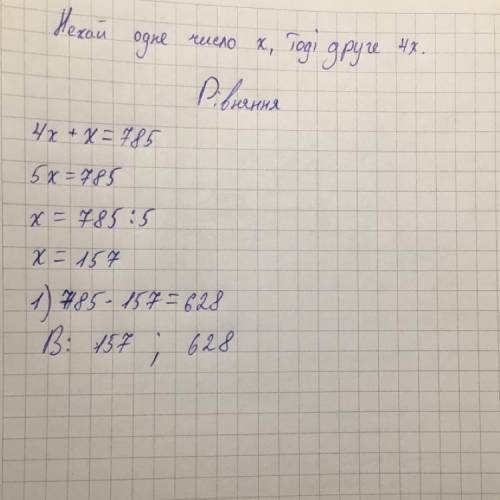 Нехай одне число x, тоді друге 4x.
Рівняння
4x + x = 785
5x = 785
x = 785 : 5
x = 157
1) 785 - 157 = 628
В: 157 ; 628